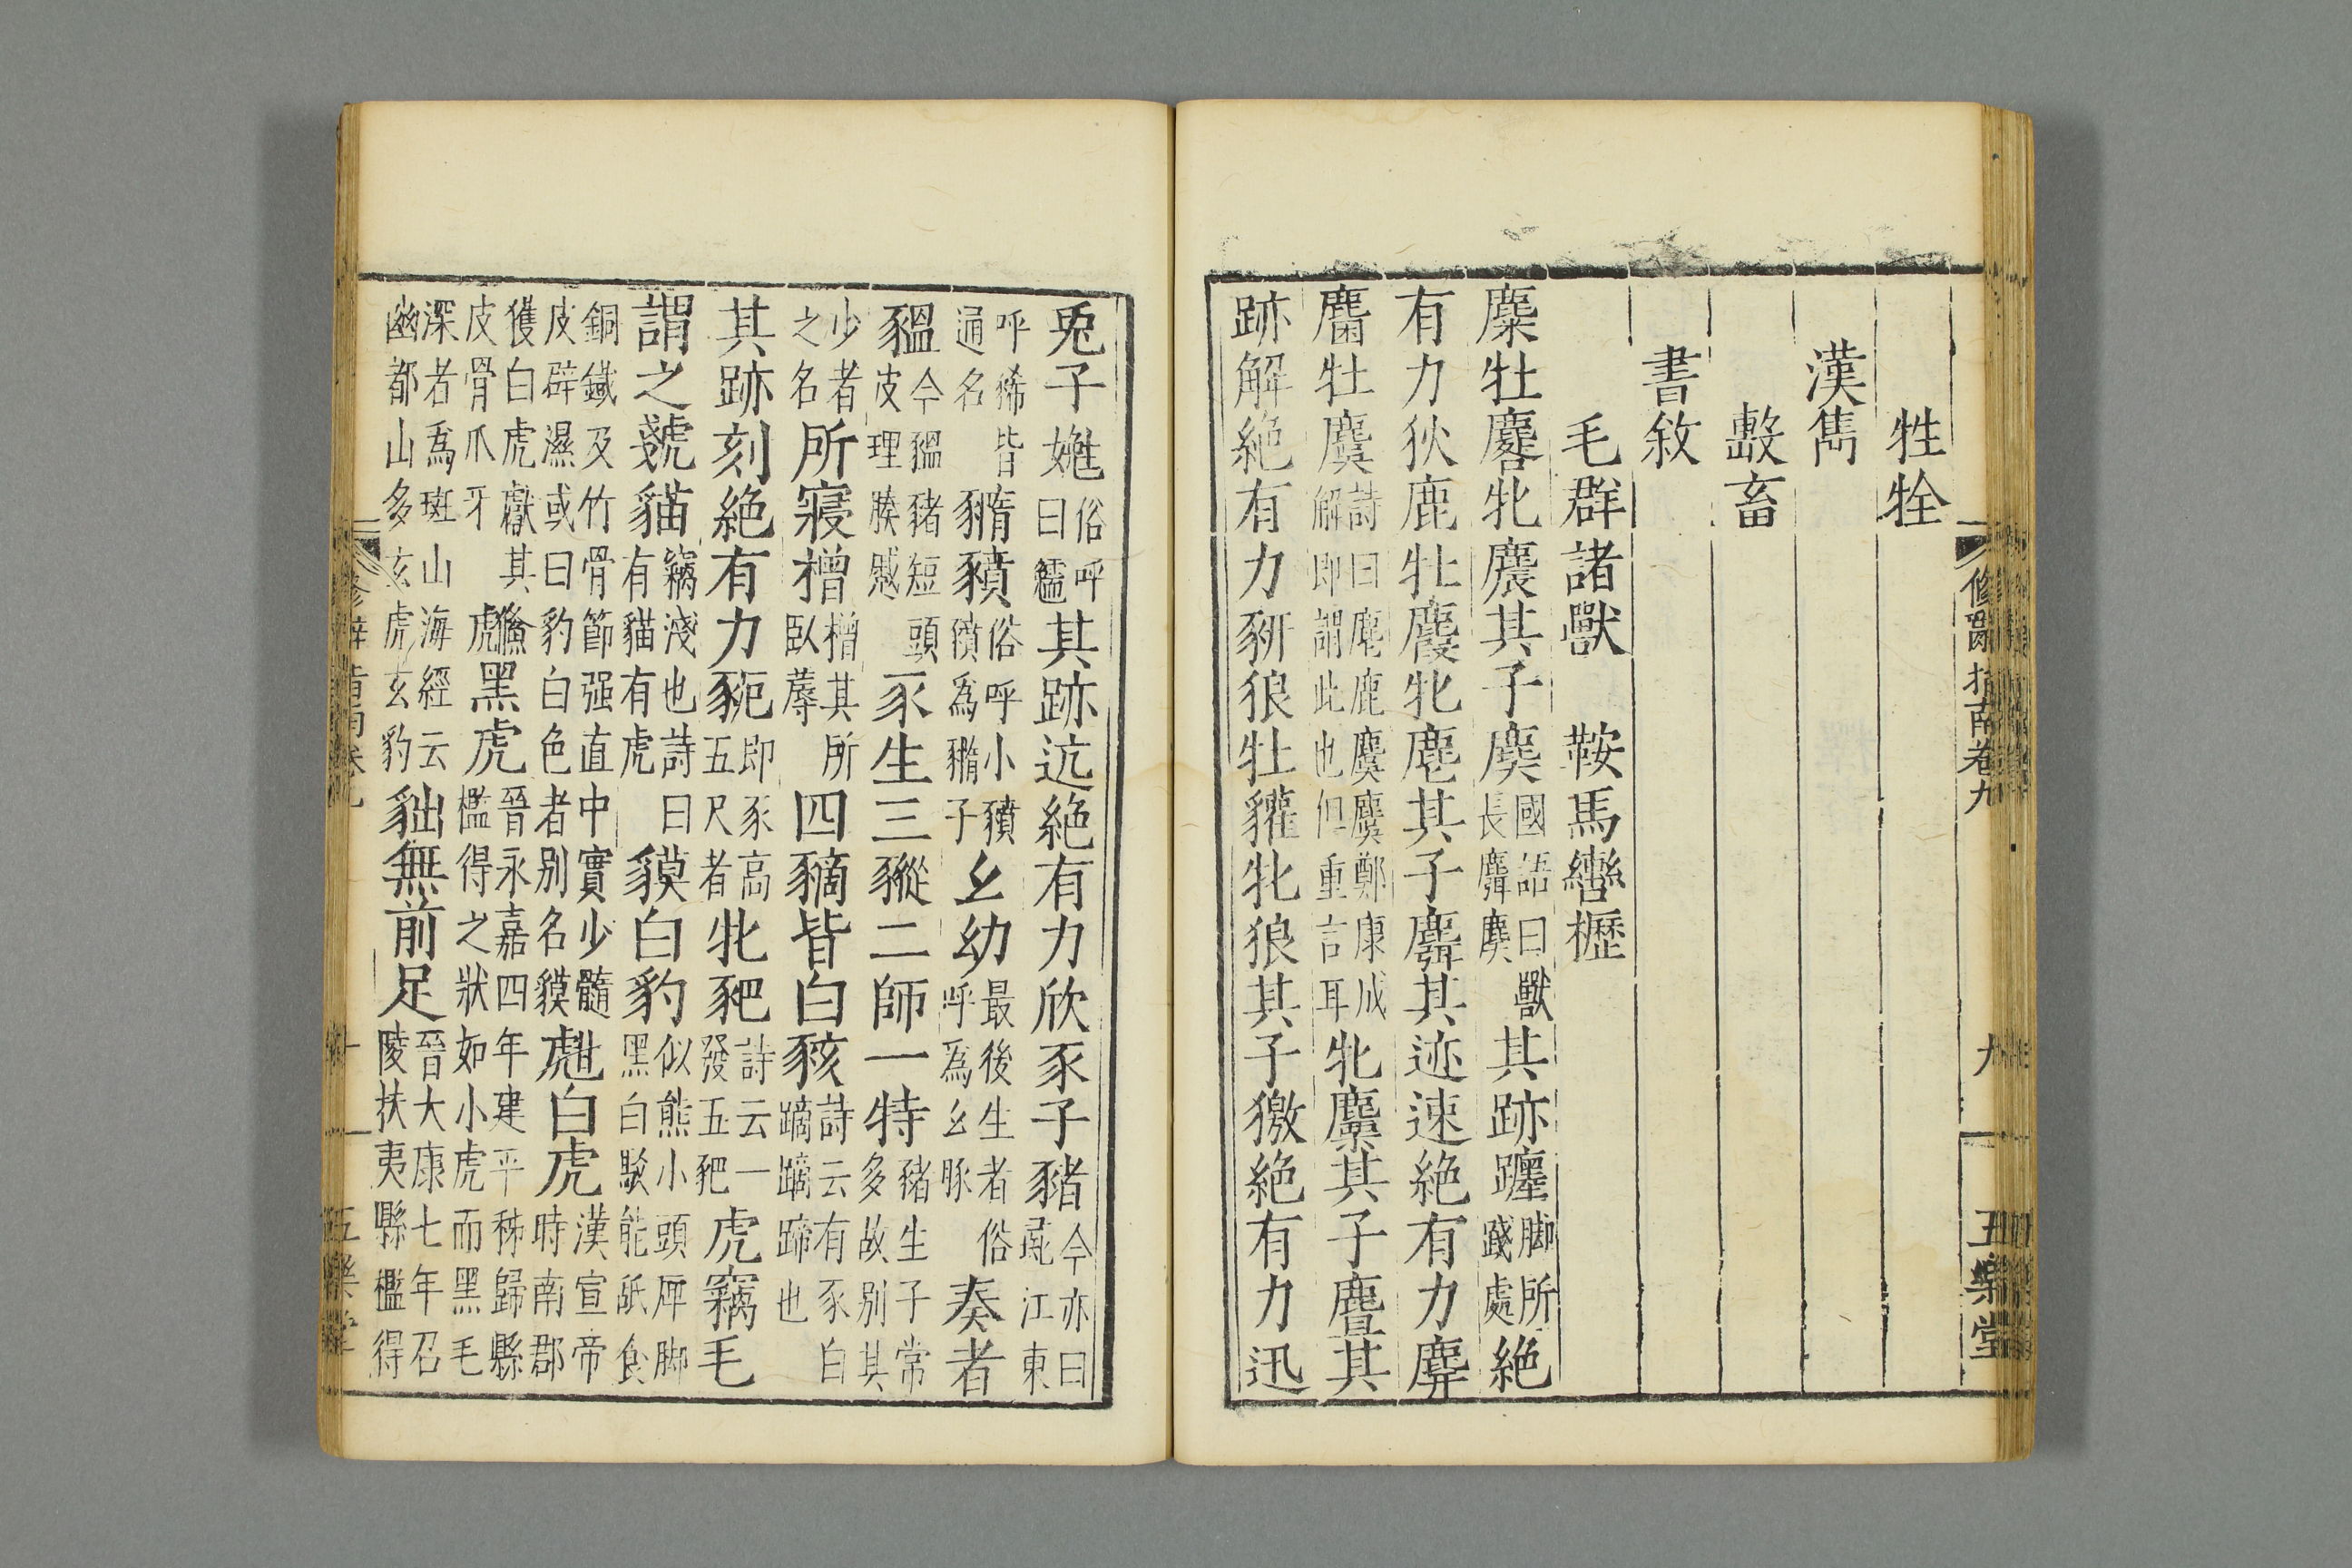 修辭指南卷九
九
五樂堂
牲牷
漢雋
㪤畜
書敘
毛群諸獸　鞍馬轡櫪
麋牡麔牝麎其子䴠國語曰獸長麛䴠其跡躔脚所踐處絶
有力狄鹿牡麚牝麀其子麛其迹速絶有力䴢
麕牡麌詩曰麀鹿麌麌鄭康成解即謂此也但重言耳牝麜其子麆其
跡解絶有力豜狼牡貛牝狼其子獥絶有力迅
兎子嬎俗呼曰䨲其跡迒絶有力欣豕子豬今亦曰彘江東
呼豨皆通名䝐豶俗呼小豶豬為䐁子幺幼最後生者俗呼爲幺豚奏者
豱今豱豬短頭皮理腠蹙豕生三豵二師一特豬生子常多故别其
少者之名所寢橧橧其所臥蓐四豴皆白豥詩云有豕白蹢蹢蹄也
其跡刻絶有力䝈即豕高五尺者牝豝詩云一發五豝虎竊毛
謂之虦貓竊淺也詩曰有貓有虎貘白豹似熊小頭庳脚黑白駁能舐食
銅鐵及竹骨節强直中實少髓皮辟濕或曰豹白色者别名貘甝白虎漢宣帝時南郡
獲白虎獻其皮骨爪牙虪黑虎晉永嘉四年建平秭歸縣檻得之狀如小虎而黑毛
深者爲斑山海經云幽都山多玄虎玄豹貀無前足晉大康七年召陵扶夷縣檻得